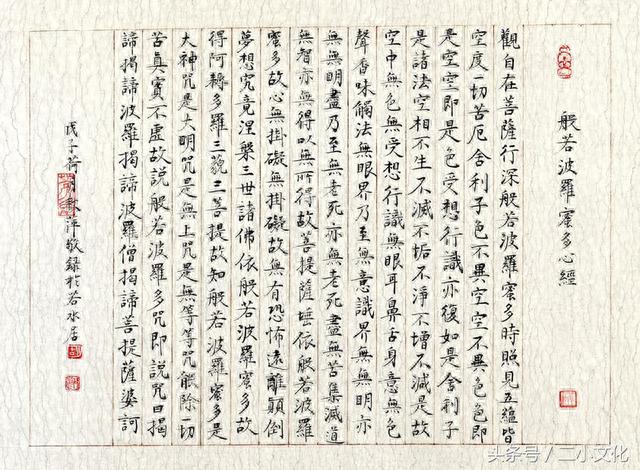 般若波羅蜜多心經
觀自在菩薩行深般若波羅蜜多時照見五蘊皆
空度一切苦厄舍利子色不異空空不異色色即
是空空即是色受想行識亦復如是舍利子
是諸法空相不生不滅不垢不淨不增不減是故
空中無色無受想行識無眼耳鼻舌身意無色
聲香味觸法無眼界乃至無意識界無無明亦
無無明盡乃至無老死亦無老死盡無苦集滅道
無智亦無得以無所得故菩提薩埵依般若波羅
蜜多故心無掛礙無掛礙故無有恐怖遠離顛倒
夢想究竟涅槃三世諸佛依般若波羅蜜多故
得阿耨多羅三藐三菩提故知般若波羅蜜多是
大神咒是大明咒是無上咒是無等等咒能除一切
苦真實不虛故説般若波羅多咒即説咒曰揭
諦揭諦波羅揭諦波羅僧揭諦菩提薩婆訶
戊子荷月萍敬録於若水居
头条号／二小文化